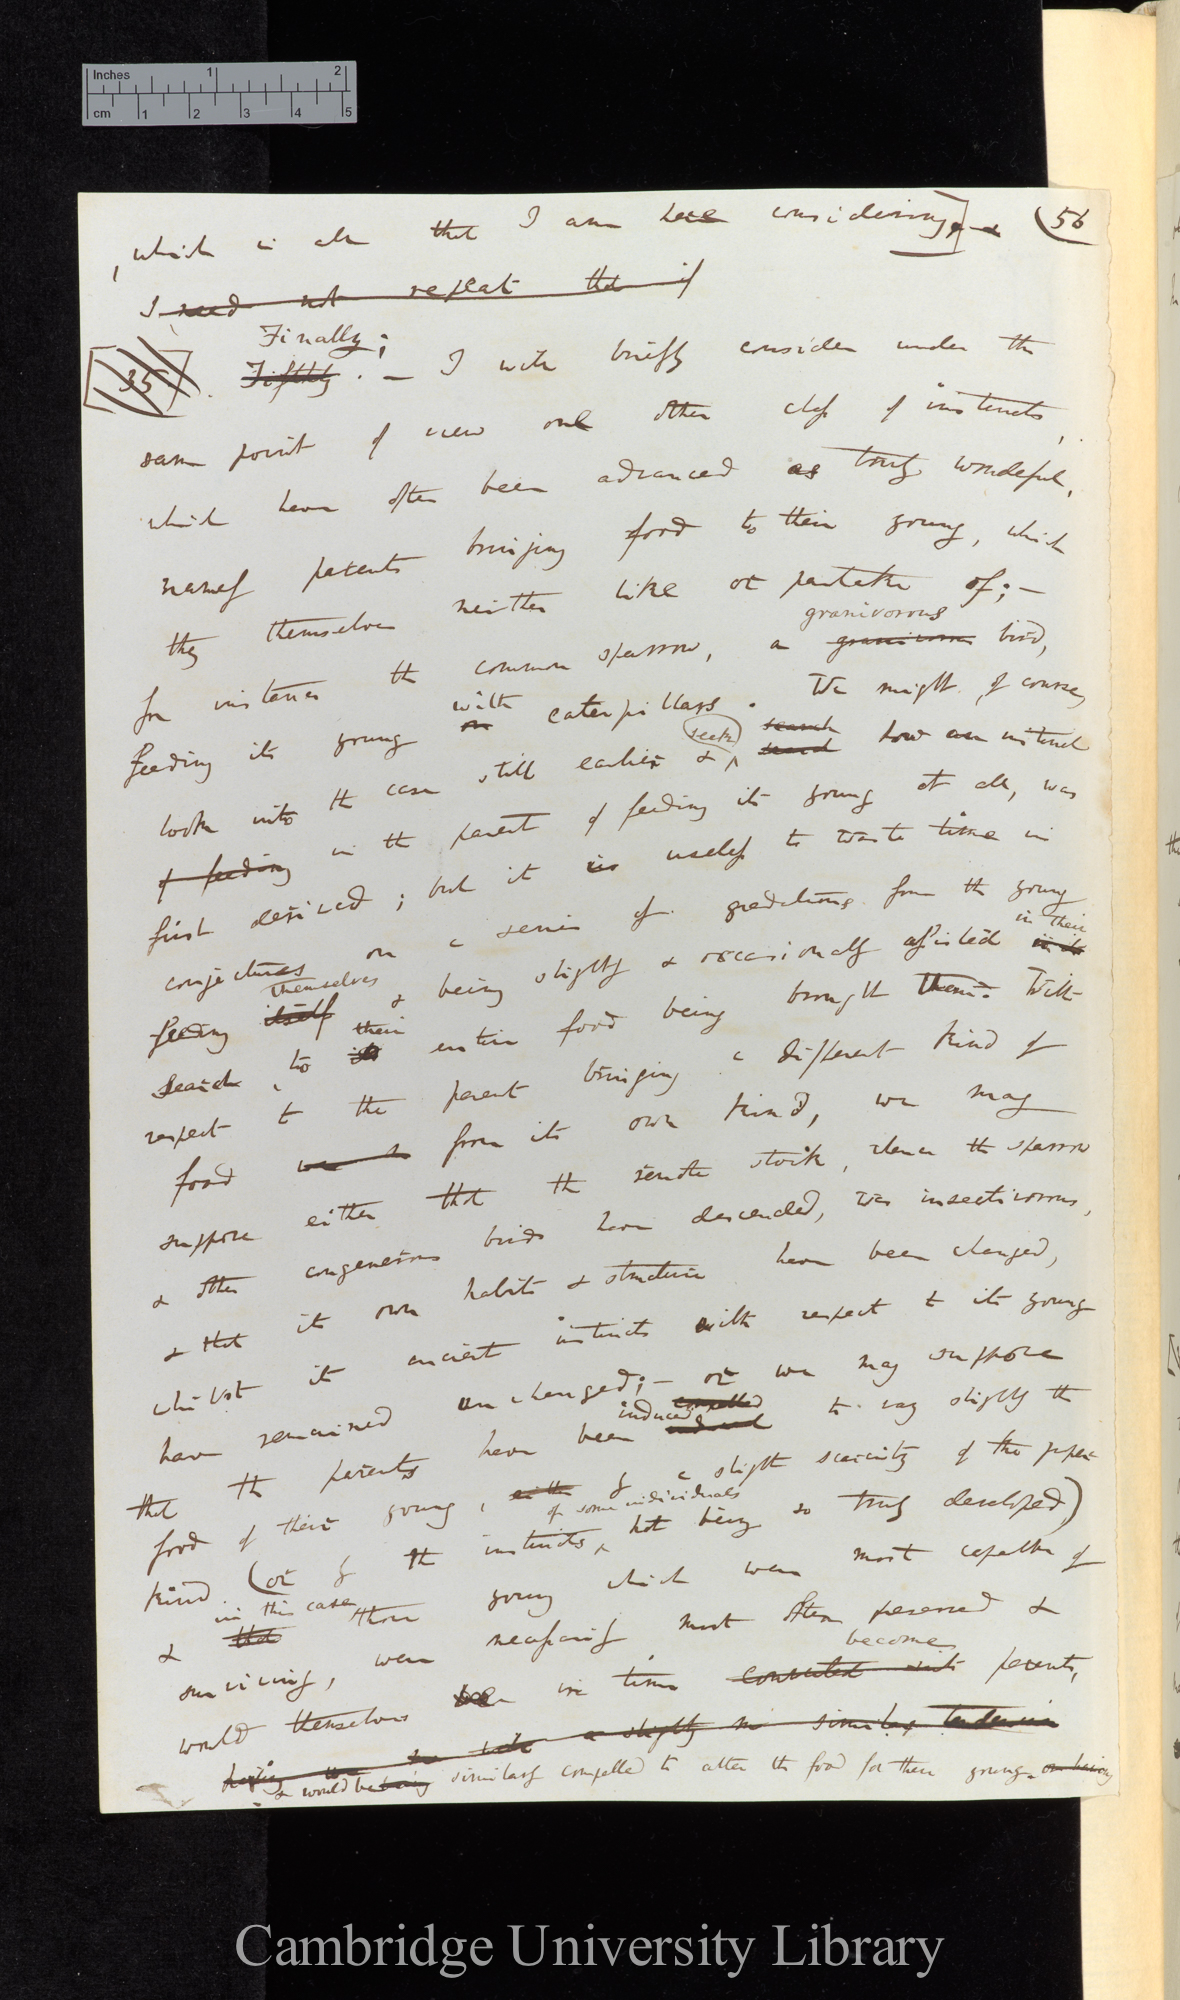 Inches 1 2
cm 1 2 3 4 5
56
, which is all that I am here considering.
I need not repeat that if
Finally;
35 Fifthly. — I will briefly consider under the
same point of view one other class of instincts,
which have often been advanced as truly wonderful,
namely parents bringing food to their young, which
they themselves neither like or partake of; —
granivorous
for instance the common sparrow, a granivorous bird,
with
feeding its young on caterpillars. We might of course
seek search
look into the case still earlier & search how an instinct
of feeding in the parent of feeding its young at all, was
first derived; but it is useless to waste time in
conjectures on a series of gradations from the young
in their
themselves
feeding itself & being slightly & occasionally assisted in its
their
search, to its entire food being brought them. With
respect to the parent bringing a different kind of
food from its own kind, we may
suppose either that the remote stock, whence the sparrow
& other congenerous birds have descended, was insectivorous,
& that its own habits & structure have been changed,
whilst its ancient instincts with respect to its young
have remained unchanged; — or we may suppose
induced compelled
that the parents have been induced to vary slightly the
food of their young, either by a slight scarcity of the proper
of some individuals
kind (or by the instincts not being so truly developed)
in this case
& that those young which were most capable of
surviving, were necessarily most often preserved &
become
would themselves in time converted into parents,
having slightly similar tendencies
& would be being similarly compelled to alter the food for their young.
Cambridge University Library